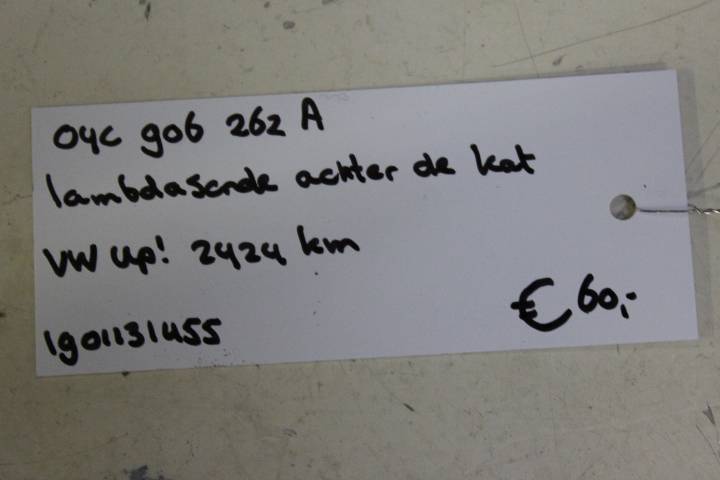 04C 906 262 A
lambdasonde achter de kat
VW up! 2424 km
1901131455
€ 60,-